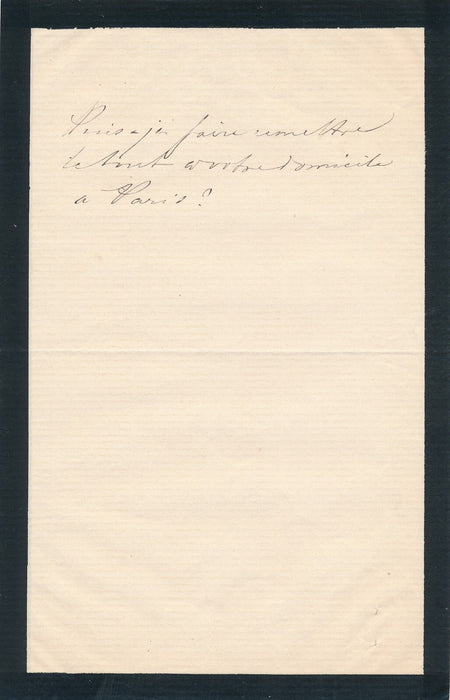 Puis-je faire remettre
le tout à votre domicile
à Paris?